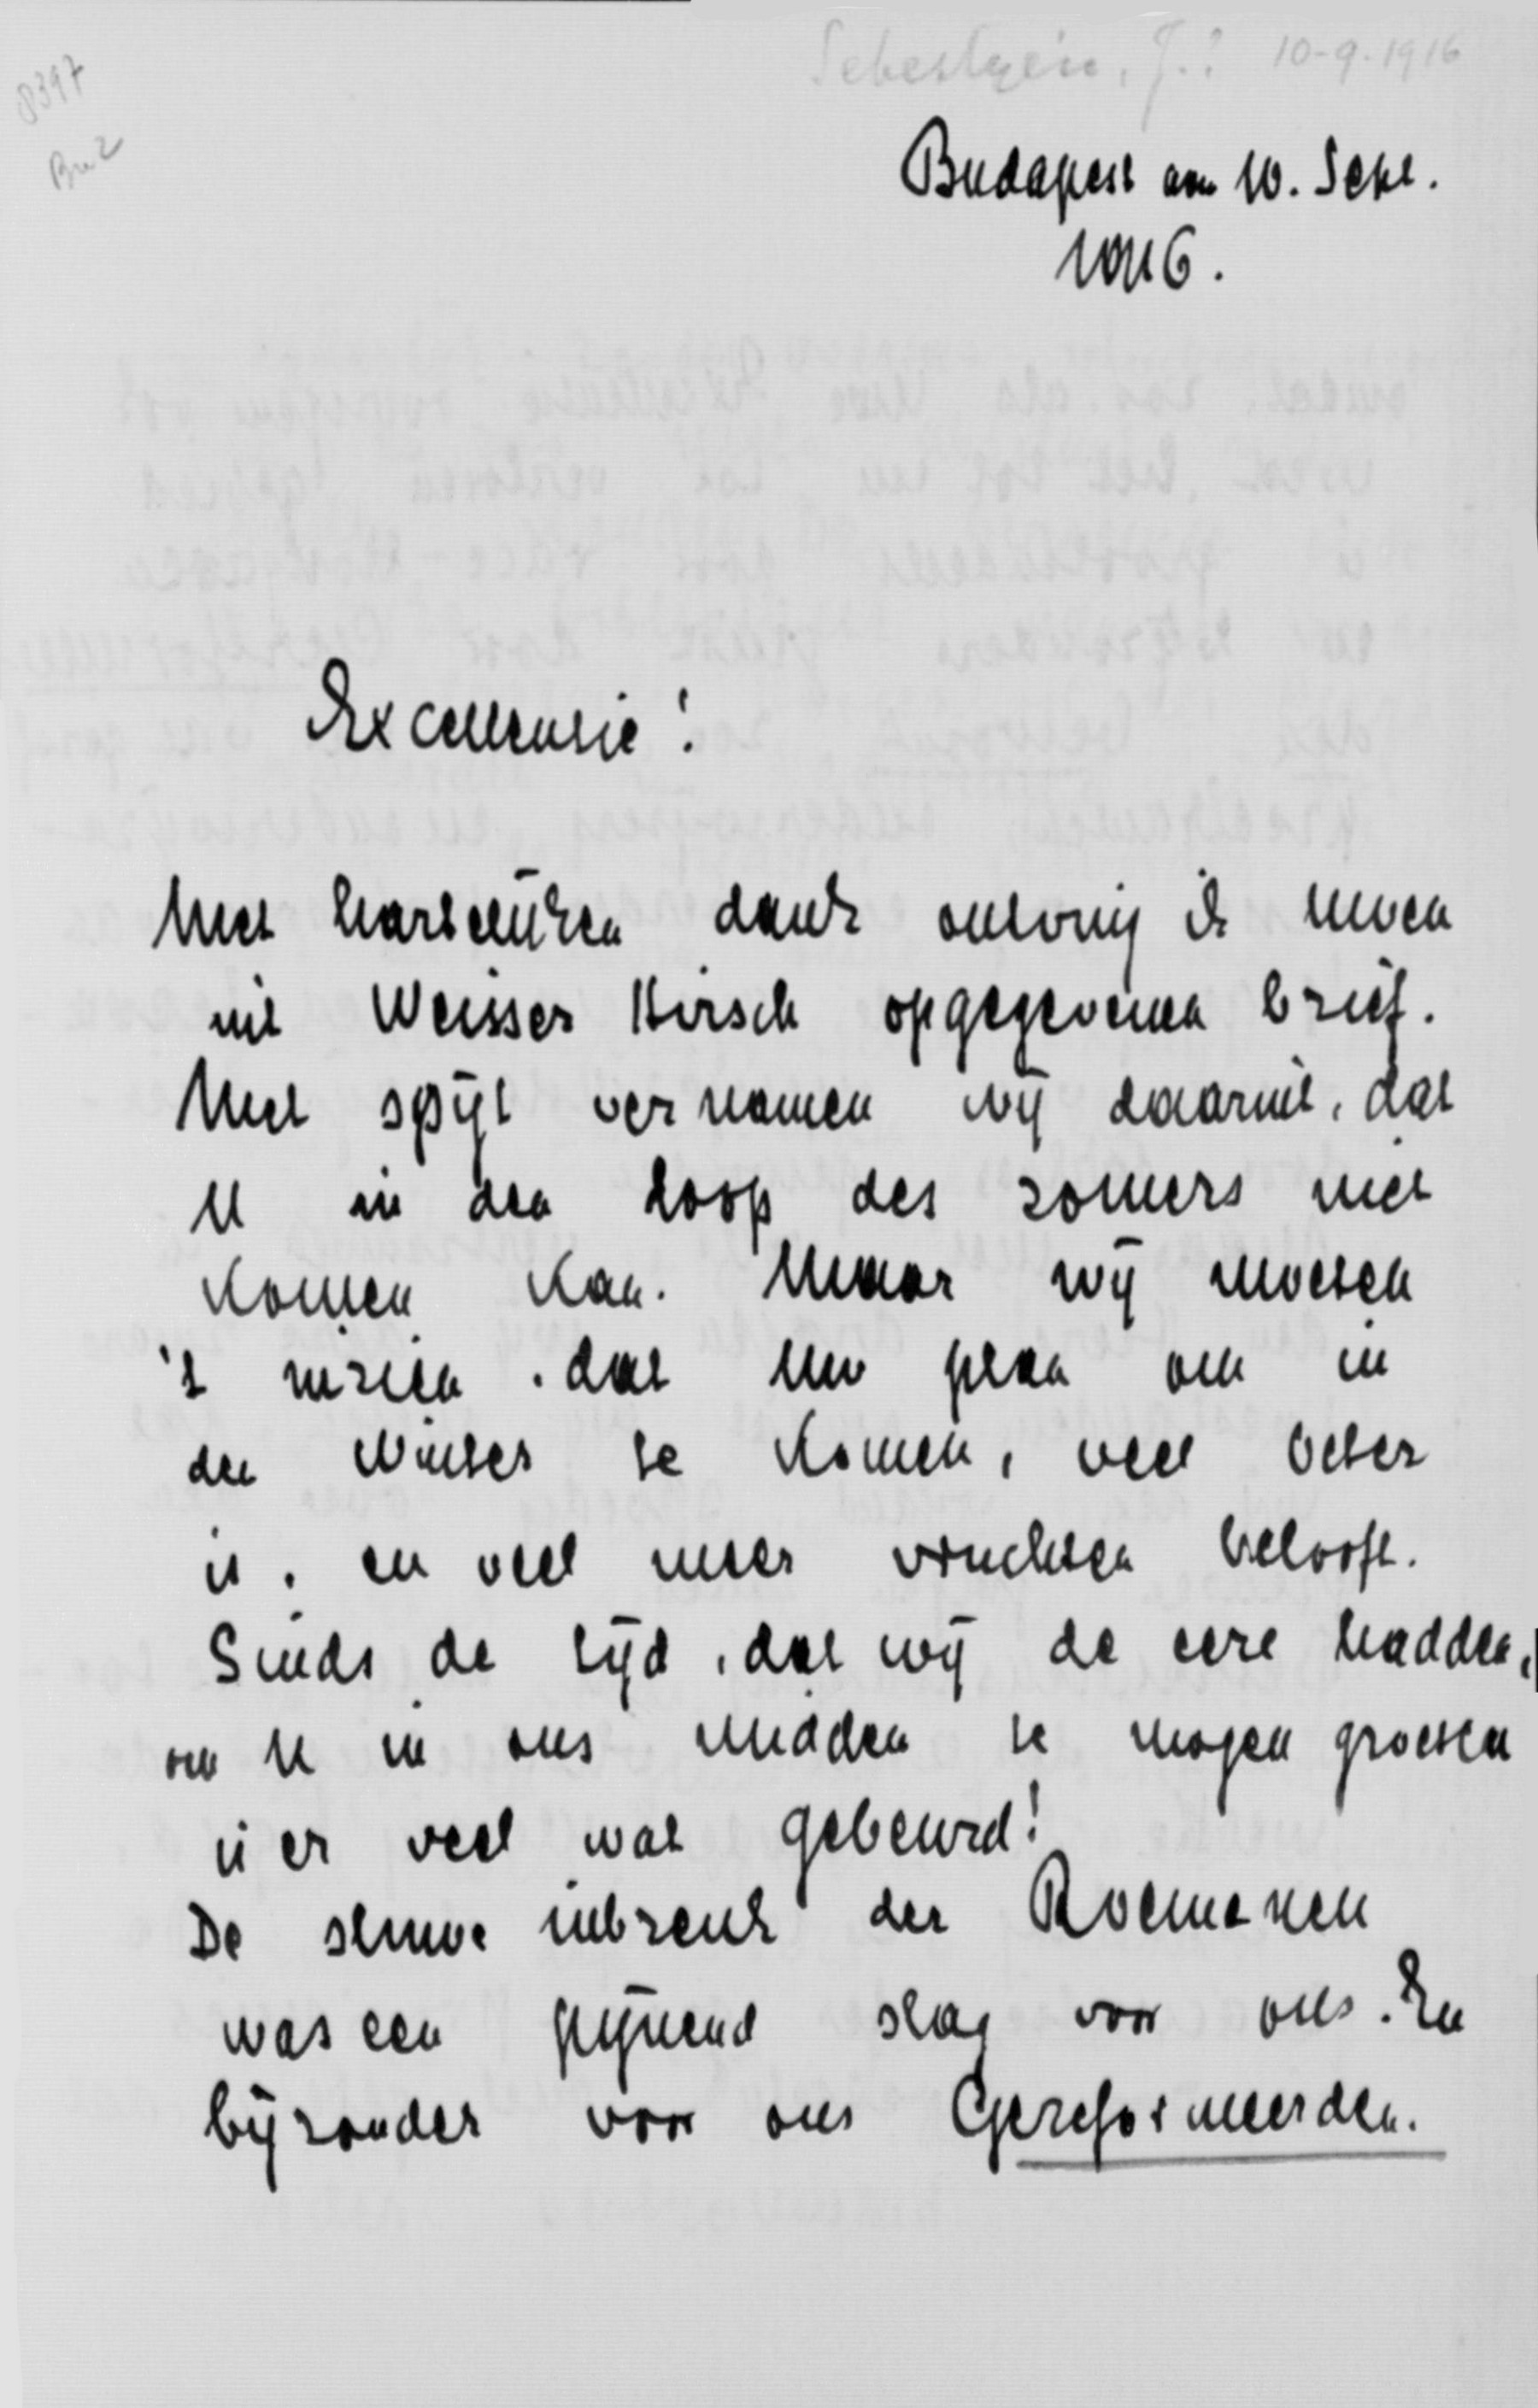 Sebestyén, J.? 10-9-1916
8397
Bu2
Budapest am 10. Sept.
1916.
Excellensie!
Met hartelijken dank ontving ik uwen
uit Weisser Hirsch opgegevenen brief.
Met spijt vernamen wij daaruit, dat
U in den loop des zomers niet
komen kan. Maar wij moeten
't inzien, dat uw plan om in
den Winter te komen, veel beter
is, en veel meer vruchten belooft.
Sinds de tijd, dat wij de eere hadden,
om U in ons midden te mogen groeten
is er veel wat gebeurd!
De sluwe inbreuk der Roemenen
was een pijnend slag voor ons. En
bijzonder voor ons Gereformeerden.